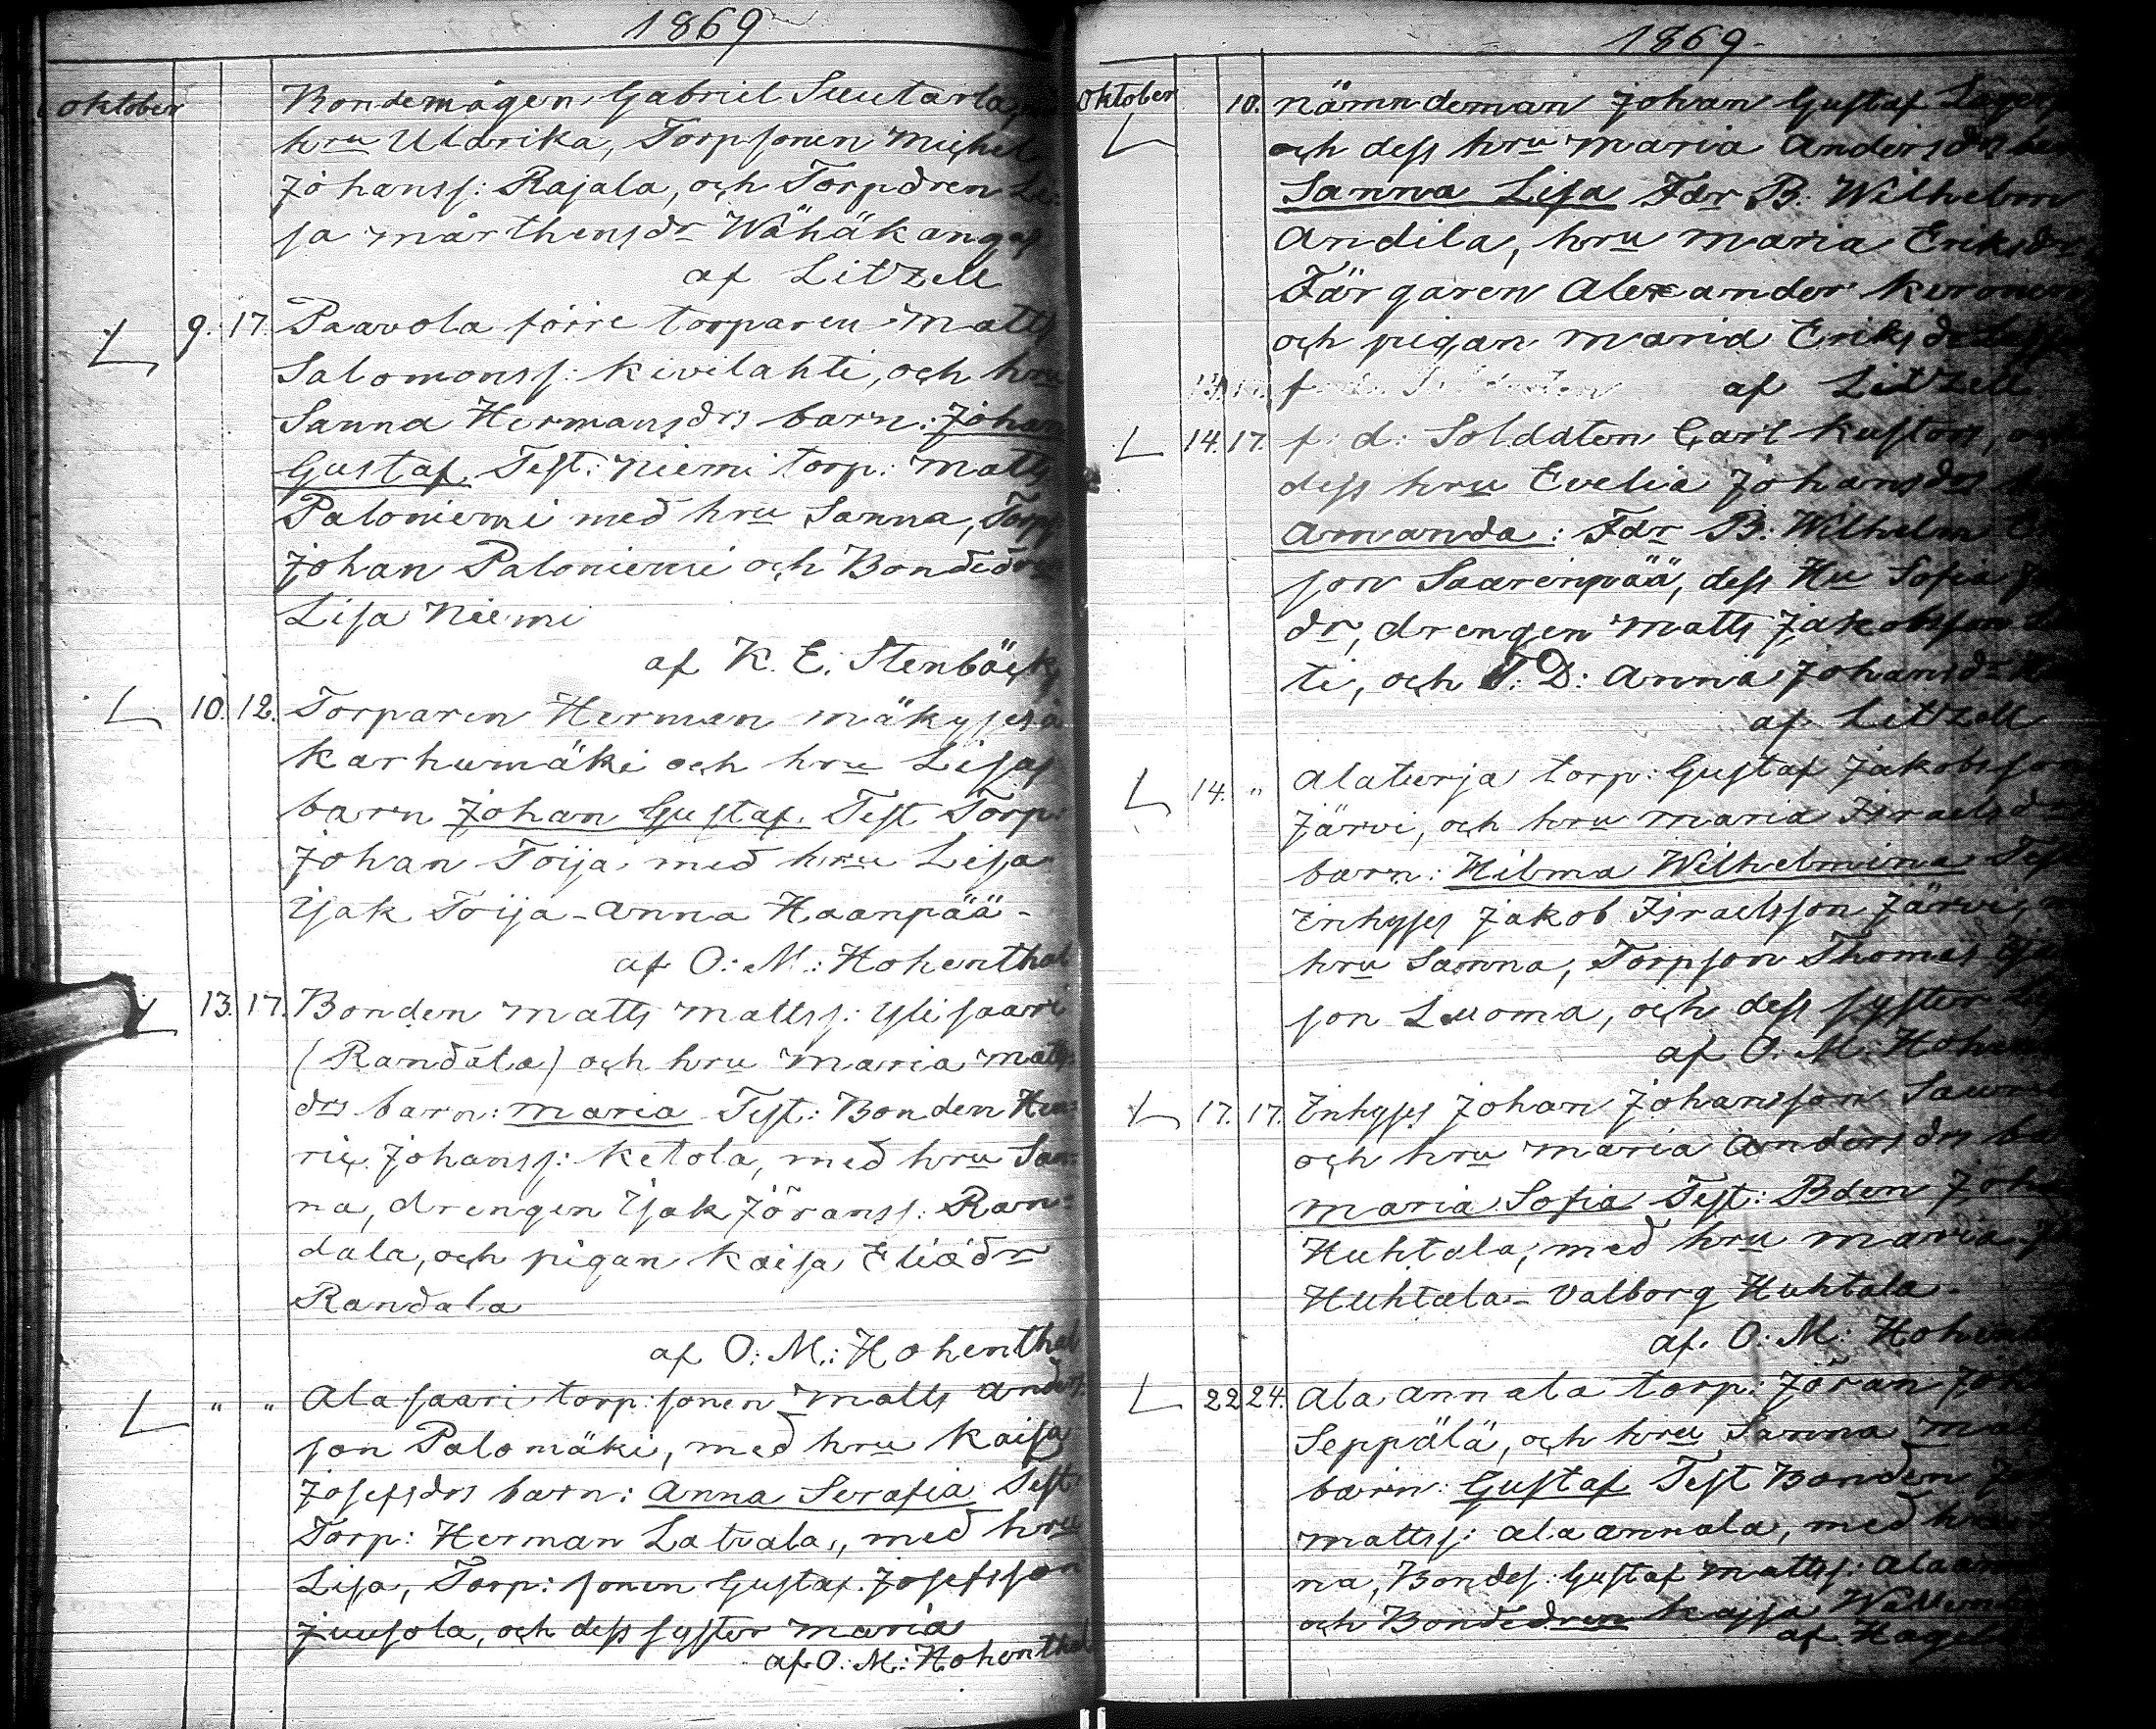 1869
Oktober
Bondemågen Gabriel Suutarla,
hru Uldrika, Torpsonen Michel
Johanss: Rajala, och Torpdren Li:
sa Mårthensdr Wähäkangas
af Litzell
9. 17. Paavola förre torparen Matts
Salomonss: Kivilahti, och hru
Sanna Hermansdrs barn: Johan
Gustaf. Test: Niemi torp: Matts
Paloniemi med hru Sanna, Torp:
Johan Paloniemi och Bondedren
Lisa Niemi
af K. E. Stenbäck
10. 12. Torparen Herman Mäkysesä
Karhumäki och hru Lisas
barn Johan Gustaf. Test Torp:
Johan Toija, med hru Lisa
Isak Toija - Anna Haanpää -
af O: M: Hohenthal
13. 17. Bonden Matts Mattss: Ylisaari
(Randala) och hru Maria Matts
drs barn: Maria Test: Bonden Hen:
ric Johanss: Ketola, med hru San:
na, drengen Isak Jöranss: Ran:
dala, och pigan Kaisa Eliædr
Randala
af O: M: Hohenthal
" " Alasaari torp: sonen Matts Anders
son Palomäki, med hru Kaisa
Josefsdrs barn: Anna Serafia Test
Torp: Herman Latvala, med hru
Lisa, Torp: sonen Gustaf. Josefsson
Juusola, och dess syster Maria
af O: M: Hohenthal
1869-
Oktober
10. Nämndeman Johan Gustaf
och dess hru Maria Andersdrs
Sanna Lisa Fdr B: Wilhelm
Andila, hru Maria Eriksdr
Färgaren Alexander
och pigan Maria Eriksdr
13. af Litzell
14. 17. f: d: Soldaten Carl Kuston,
dess hru Evelia Johansdrs
Amanda: Fdr B: Wilhelm
son Saarenpää, dess Hu Sofia
dr, drengen Matts Jakobsson
ti, och T: D: Anna Johansdr
af Litzell
14. " Alaturja torp: Gustaf Jakobsson
Järvi, och hru Maria Israelsd
barn: Hilma Wilhelmina Test
Inhyses Jakob Israelsson Järvi,
hru Sanna, Torpson Thomas
son Luoma, och dess syster
af O. M: Hohen
17. 17. Inhyses Johan Johansson
och hru Maria Andersdrs
Maria Sofia Test: Bden Joh
Huhtala, med hru Maria
Huhtala - Valborg Huhtala -
af. O: M: Hohent
22 24. Ala annala torp: Jöran Joh
Seppälä, och hru Sanna Mat
barn: Gustaf Test Bonden
Mattss: Alaannala, med hru
na, Bondes: Gustaf Mattss: Alaan
och Bondedren Kajsa
af